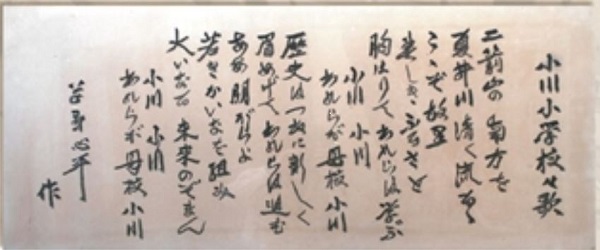 小川小学校々歌
二箭山の南方を
夏井川清く流るる
ここぞ故里
楽しきふるさと
胸はりてあれらは学ぶ
小川 小川
あれらが母校 小川
歴史はつねに新しく
眉あげてあれらは進む
あゝ朋がらよ
若きかいなを組み
大いなる 未来のぞまん
小川 小川
あれらが母校 小川
草野心平
作